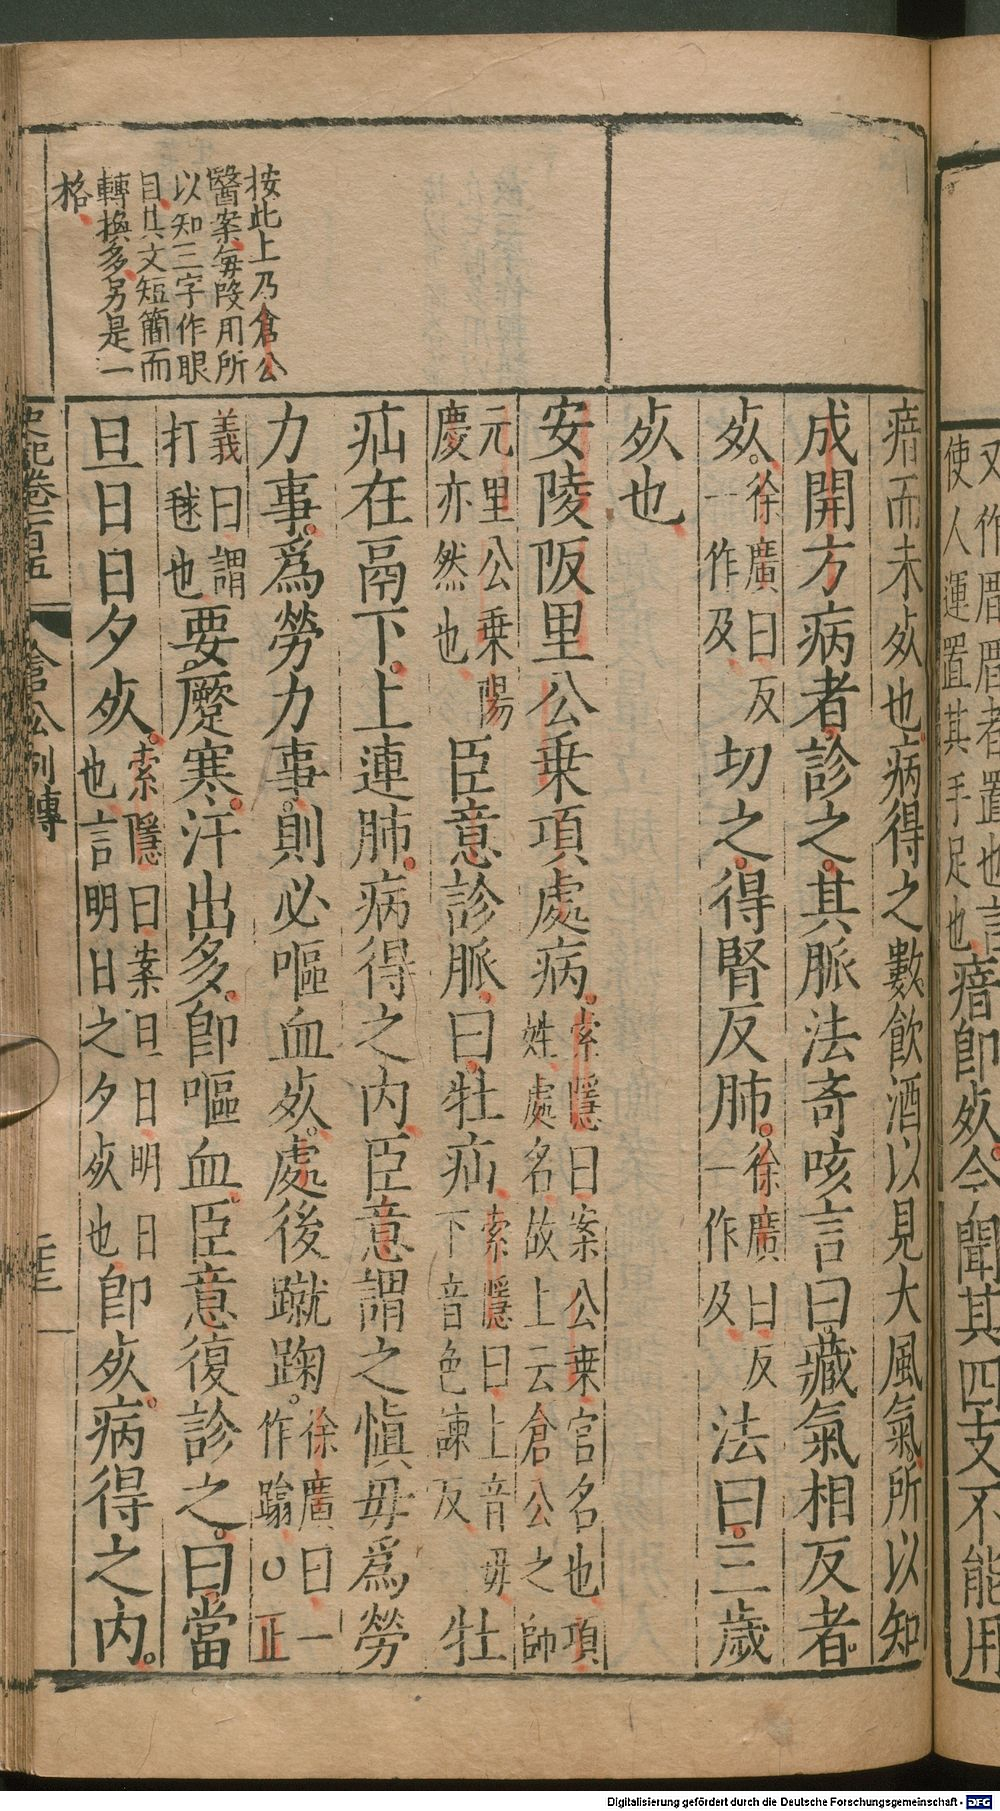 又作厝厝者置也言
使人運置其手足也
瘖即死今聞其四支不能用
瘖而未死也病得之數飲酒以見大風氣所以知
成開方病者診之其脈法奇咳言曰藏氣相反者
死徐廣曰反一作及切之得腎反肺徐廣曰反一作及法曰三歲
死也
安陵阪里公乗項處病索隱曰案公乗官名也項姓處名故上云倉公之師
元里公乗陽慶亦然也臣意診脈曰牡疝索隱曰上音毋下音色諫反牡
疝在鬲下上連肺病得之內臣意謂之愼毋爲勞
力事爲勞力事則必嘔血死處後蹴踘徐廣曰一作蹹○正
義曰謂打毬也要蹷寒汗出多卽嘔血臣意復診之曰當
旦日日夕死索隱曰案旦日明日也言明日之夕死也卽死病得之內
按此上乃倉公
醫案每段用所
以知三字作眼
目其文短簡而
轉換多另是一
格
史記卷一百五
倉公列傳
Digitalisierung gefördert durch die Deutsche Forschungsgemeinschaft - DFG